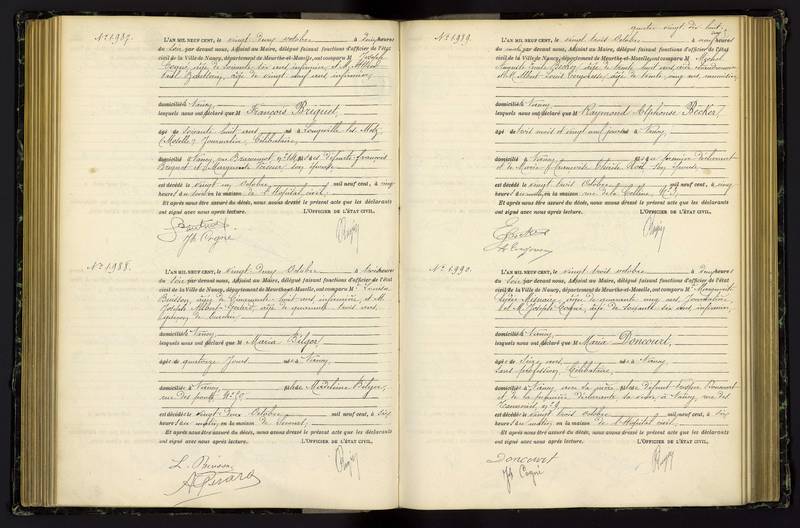 N° 1987.
L'AN MIL NEUF CENT, le vingt deux octobre à deux heures
du soir par devant nous, Adjoint au Maire, délégué faisant fonctions d'officier de l'état
civil de la Ville de Nancy, département de Meurthe-et-Moselle, ont comparu M Joseph
Cogné, âgé de soixante six ans infirmier, et M. Albert
âgé de vingt neuf ans infirmier,
domicilié à Nancy,
lesquels nous ont déclaré que M François Briguet,
âgé de soixante huit ans né à Longeville les Metz
(Moselle) Journalier, Célibataire,
domicilié à Nancy, rue fils de défunts François
Briguet et Marguerite son épouse
est décédé le vingt un Octobre mil neuf cent, à cinq
heures du soir en la maison de l'Hôpital civil,
Et après nous être assuré du décès, nous avons dressé le présent acte que les déclarants
ont signé avec nous après lecture. L'OFFICIER DE L'ÉTAT CIVIL,
Jh Cogné
N° 1988.
L'AN MIL NEUF CENT, le vingt deux Octobre à trois heures
du soir par devant nous, Adjoint au Maire, délégué faisant fonctions d'officier de l'état
civil de la Ville de Nancy, département de Meurthe-et-Moselle, ont comparu M Louise
Buisson, âgée de Cinquante huit ans infirmière, et M.
Joseph Albert Gérard, âgé de quarante huit ans
domicilié à Nancy
lesquels nous ont déclaré que M Maria Bilger
âgée de quatorze Jours née à Nancy,
domiciliée à Nancy fille de Madeleine Bilger,
rue des ponts N° 20
est décédée le vingt deux Octobre mil neuf cent, à six
heures du matin, en la maison de Secours,
Et après nous être assuré du décès, nous avons dressé le présent acte que les déclarants
ont signé avec nous après lecture. L'OFFICIER DE L'ÉTAT CIVIL,
L. Buisson
A Gérard
quatre vingt dix huit
N° 1989.
L'AN MIL NEUF CENT, le vingt trois Octobre à neuf heures
du matin par devant nous, Adjoint au Maire, délégué faisant fonctions d'officier de l'état
civil de la Ville de Nancy, département de Meurthe-et-Moselle, ont comparu M Michel
Auguste Becker, âgé de trente huit ans
et M. Albert Louis âgé de trente cinq ans
domicilié à Nancy
lesquels nous ont déclaré que M Raymond Alphonse Becker,
âgé de trois mois et vingt jours né à Nancy,
domicilié à Nancy fils du premier déclarant
et de Marie son épouse
est décédé le vingt trois Octobre mil neuf cent, à cinq
heures du matin, en la maison rue de la Colline, N° 9
Et après nous être assuré du décès, nous avons dressé le présent acte que les déclarants
ont signé avec nous après lecture. L'OFFICIER DE L'ÉTAT CIVIL,
N° 1990.
L'AN MIL NEUF CENT, le vingt trois octobre à deux heures
du soir par devant nous, Adjoint au Maire, délégué faisant fonctions d'officier de l'état
civil de la Ville de Nancy, département de Meurthe-et-Moselle, ont comparu M Marguerite
âgée de quarante cinq ans, Journalière,
et M. Joseph Cogné, âgé de soixante six ans infirmier,
domicilié à Nancy
lesquels nous ont déclaré que M Maria Doncourt,
âgée de Seize ans née à Nancy
sans profession, Célibataire,
domiciliée à Nancy avec sa mère, fille de Défunt Doncourt
et de la première déclarante sa veuve à Nancy, rue des
est décédée le vingt trois octobre mil neuf cent, à six
heures du matin, en la maison de l'Hôpital civil,
Et après nous être assuré du décès, nous avons dressé le présent acte que les déclarants
ont signé avec nous après lecture. L'OFFICIER DE L'ÉTAT CIVIL,
Doncourt
Jh Cogné